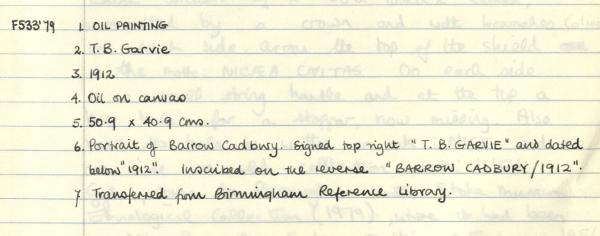 F533'79 1. OIL PAINTING
2. T.B. Garvie
3. 1912
4. Oil on canvas
5. 50.9 x 40.9 cms.
6. Portrait of Barrow Cadbury. Signed top right "T. B. GARVIE" and dated
below "1912". Inscribed on the reverse "BARROW CADBURY/1912".
7 Transferred from Birmingham Reference Library.